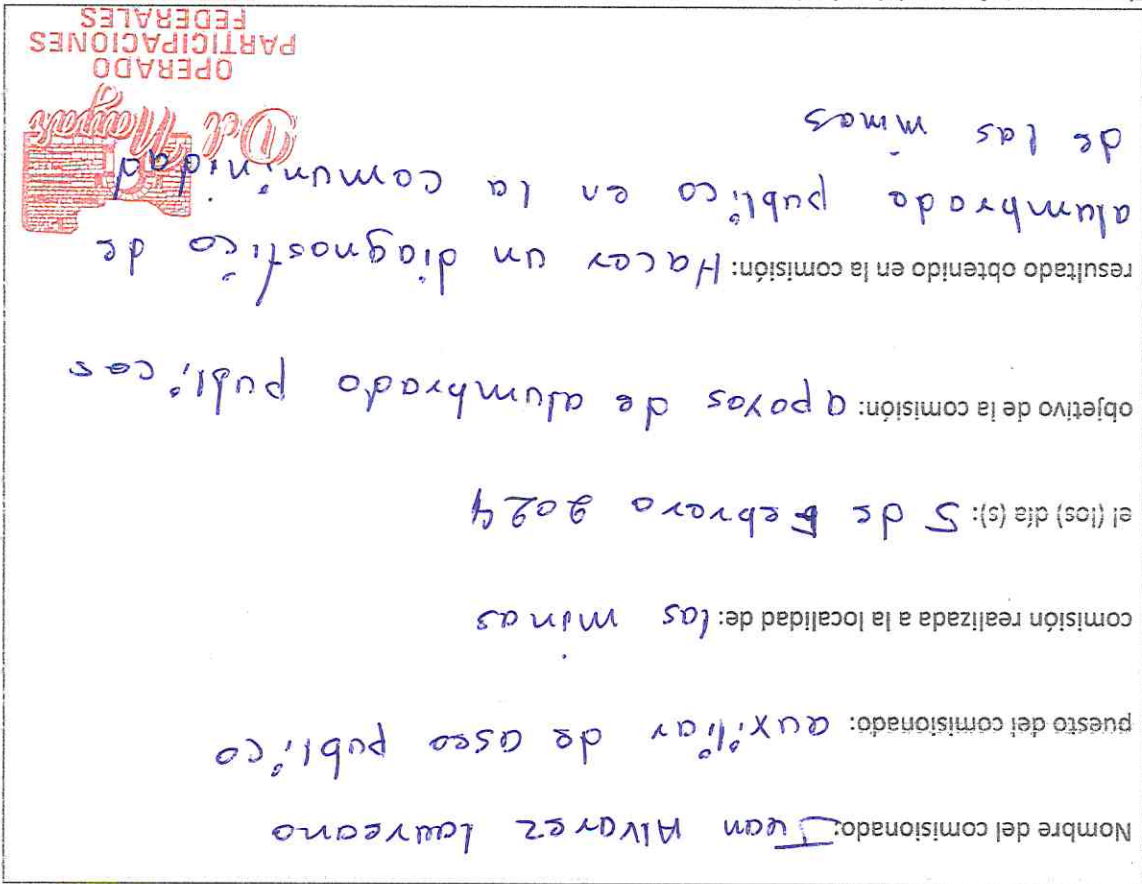 Nombre del comisionado: Juan Alvarez Laureano
puesto del comisionado: auxiliar de aseo publico
comisión realizada a la localidad de: las minas
el (los) día (s): 5 de Febrero 2024
objetivo de la comisión: apoyos de alumbrado publicos
resultado obtenido en la comisión: Hacer un diagnostico de
alumbrado publico en la comuninidad
de las minas
Del Nayar
OPERADO
PARTICIPACIONES
FEDERALES